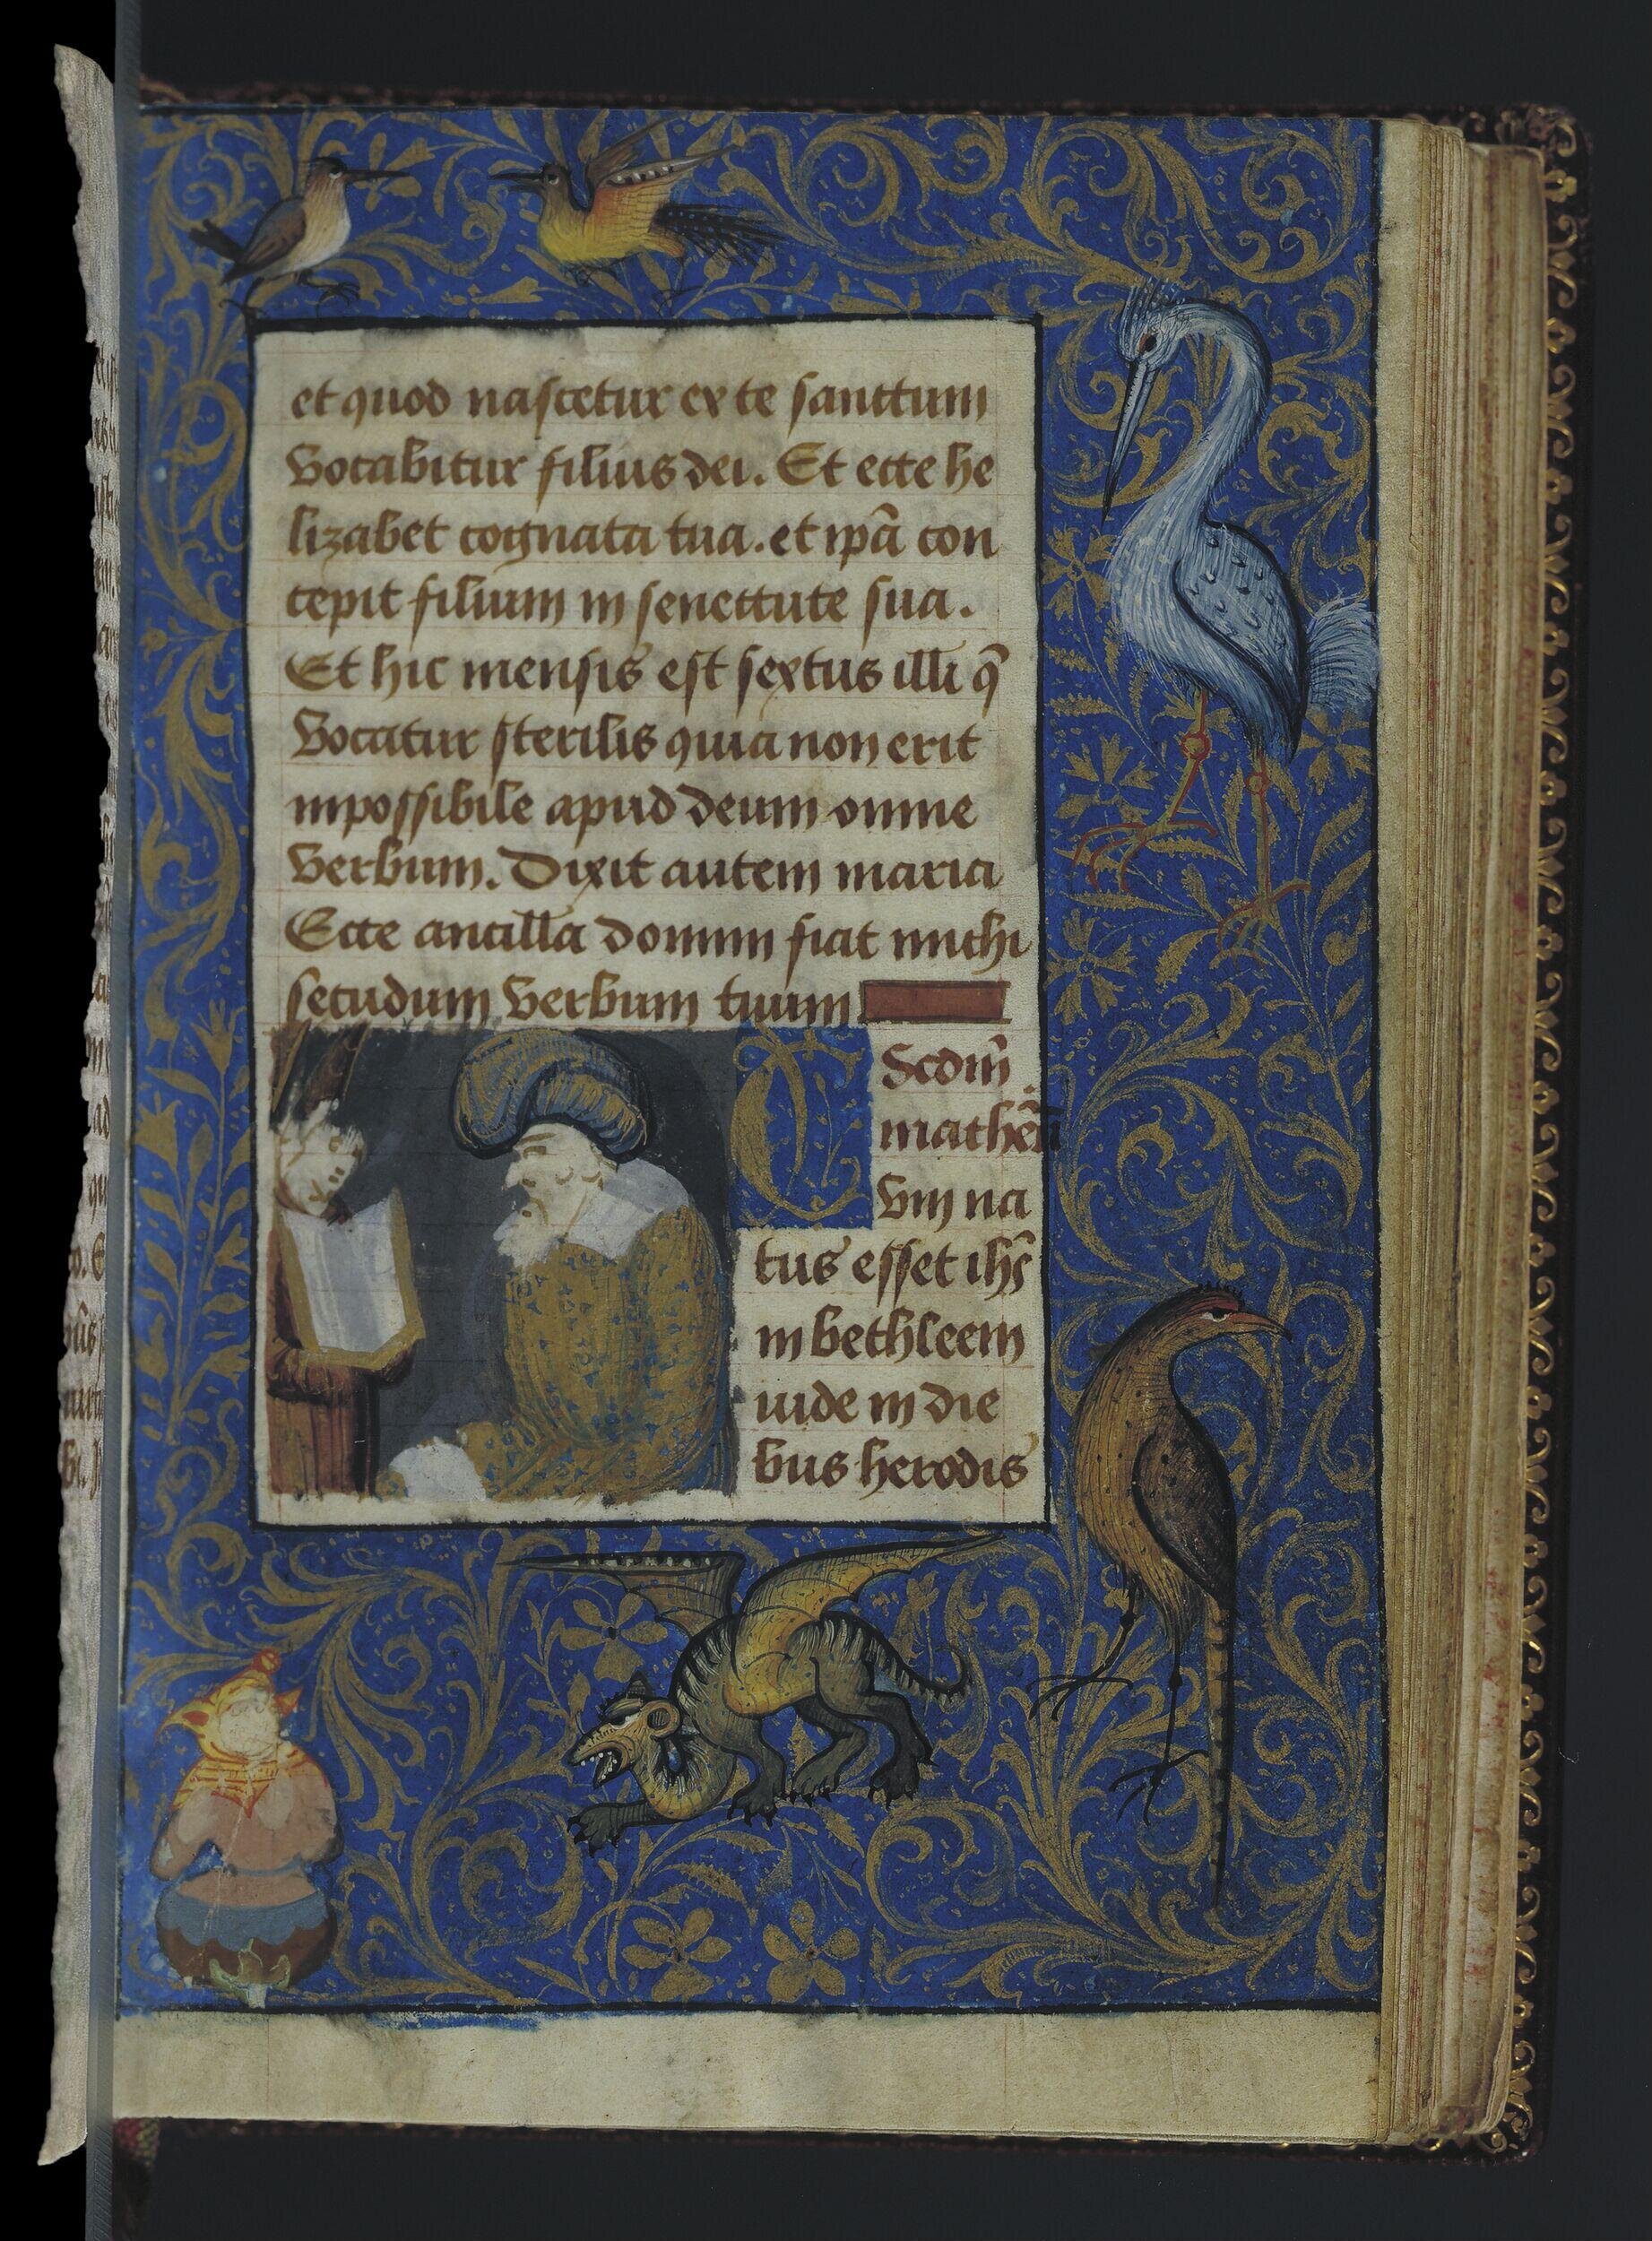 et quod nascetur ex te sanctum
Vocabitur filius dei. Et ecce he
lizabet cognata tua. et ipã con
cepit filium in senectute sua.
Et hic mensis est sextus illi q̃
Vocatur sterilis quia non erit
inpossibile apud deum omne
Verbum. Dixit autem maria
Ecce ancilla domini fiat michi
secudum Verbum tuum
Scdm̃
mathe᷈u
C Vm na
tus esset ihs̃
in bethleem
iude in die
bus herodis